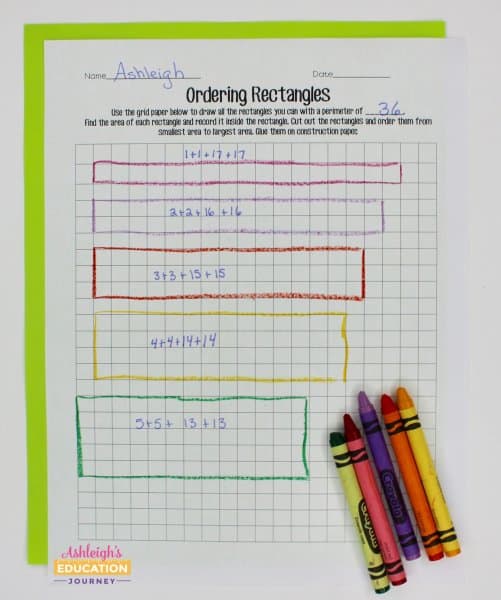 Name Ashleigh Date
Ordering Rectangles
Use the grid paper below to draw all the rectangles you can with a perimeter of 36.
Find the area of each rectangle and record it inside the rectangle. Cut out the rectangles and order them from
smallest area to largest area. Glue them on construction paper.
1+1+17+17
2+2+16+16
3+3+15+15
4+4+14+14
5+5+ 13+13
Crayola
Crayola
Ashleigh's
EDUCATION
JOURNEY